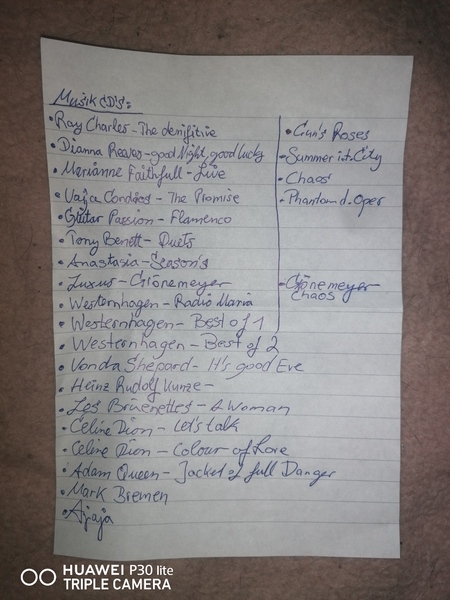 Musik CD's:
• Ray Charles - The denifitive
• Dianna Reeves - good Night, good lucky
• Marianne Faithfull - Live
• Vaija - The Promise
• Guitar Passion - Flamenco
• Tony Benett - Duets
• Anastasia - Season's
• Luxus - Grönemeyer
• Westernhagen - Radio Maria
• Westernhagen - Best of 1
• Westernhagen - Best of 2
• Vonda Shepard - It's good Eve
• Heinz Rudolf Kunze -
• Les Bruenettes - A Woman
• Celine Dion - Let's talk
• Celine Dion - Colour of Love
• Adam Queen - Jacket of full Danger
• Mark Bremen
• Ajaja
• Gun's Roses
• Summer i.t. City
• Chaos
• Phantom d. Oper
• Grönemeyer
Chaos
HUAWEI P30 lite
TRIPLE CAMERA